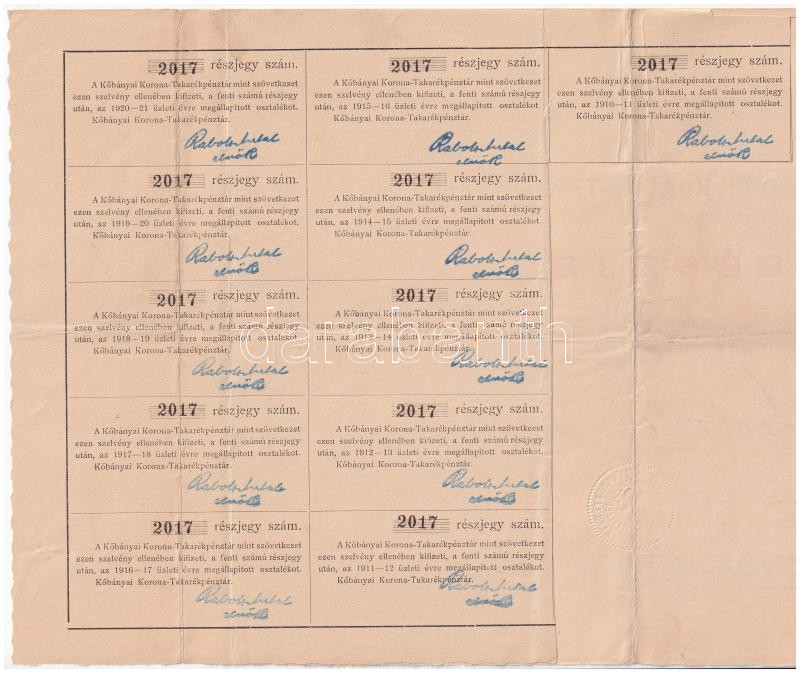 2017 részjegy szám.
A Kőbányai Korona-Takarékpénztár mint szövetkezet
ezen szelvény ellenében kifizeti, a fenti számú részjegy
után, az 1920—21 üzleti évre megállapitott osztalékot.
Kőbányai Korona-Takarékpénztár.
elnök
2017 részjegy szám.
A Kőbányai Korona-Takarékpénztár mint szövetkezet
ezen szelvény ellenében kifizeti, a fenti számú részjegy
után, az 1915—16 üzleti évre megállapitott osztalékot.
Kőbányai Korona-Takarékpénztár.
elnök
2017 részjegy szám.
A Kőbányai Korona-Takarékpénztár mint szövetkezet
ezen szelvény ellenében kifizeti, a fenti számú részjegy
után, az 1910—11 üzleti évre megállapitott osztalékot.
Kőbányai Korona-Takarékpénztár.
elnök
2017 részjegy szám.
A Kőbányai Korona-Takarékpénztár mint szövetkezet
ezen szelvény ellenében kifizeti, a fenti számú részjegy
után, az 1919—20 üzleti évre megállapitott osztalékot.
Kőbányai Korona-Takarékpénztár.
elnök
2017 részjegy szám.
A Kőbányai Korona-Takarékpénztár mint szövetkezet
ezen szelvény ellenében kifizeti, a fenti számú részjegy
után, az 1914—15 üzleti évre megállapitott osztalékot.
Kőbányai Korona-Takarékpénztár.
elnök
2017 részjegy szám.
A Kőbányai Korona-Takarékpénztár mint szövetkezet
ezen szelvény ellenében kifizeti, a fenti számú részjegy
után, az 1918—19 üzleti évre megállapitott osztalékot.
Kőbányai Korona-Takarékpénztár.
elnök
2017 részjegy szám.
A Kőbányai Korona-Takarékpénztár mint szövetkezet
ezen szelvény ellenében kifizeti, a fenti számú részjegy
után, az 1913—14 üzleti évre megállapitott osztalékot.
Kőbányai Korona-Takarékpénztár.
elnök
darabanth
2017 részjegy szám.
A Kőbányai Korona-Takarékpénztár mint szövetkezet
ezen szelvény ellenében kifizeti, a fenti számú részjegy
után, az 1917—18 üzleti évre megállapitott osztalékot.
Kőbányai Korona-Takarékpénztár.
elnök
2017 részjegy szám.
A Kőbányai Korona-Takarékpénztár mint szövetkezet
ezen szelvény ellenében kifizeti, a fenti számú részjegy
után, az 1912—13 üzleti évre megállapitott osztalékot.
Kőbányai Korona-Takarékpénztár.
elnök
2017 részjegy szám.
A Kőbányai Korona-Takarékpénztár mint szövetkezet
ezen szelvény ellenében kifizeti, a fenti számú részjegy
után, az 1916—17 üzleti évre megállapitott osztalékot.
Kőbányai Korona-Takarékpénztár.
elnök
2017 részjegy szám.
A Kőbányai Korona-Takarékpénztár mint szövetkezet
ezen szelvény ellenében kifizeti, a fenti számú részjegy
után, az 1911—12 üzleti évre megállapitott osztalékot.
Kőbányai Korona-Takarékpénztár.
elnök